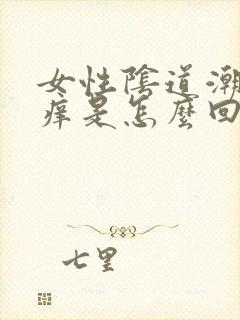 女性陰道潮
痒是怎麼回
七里